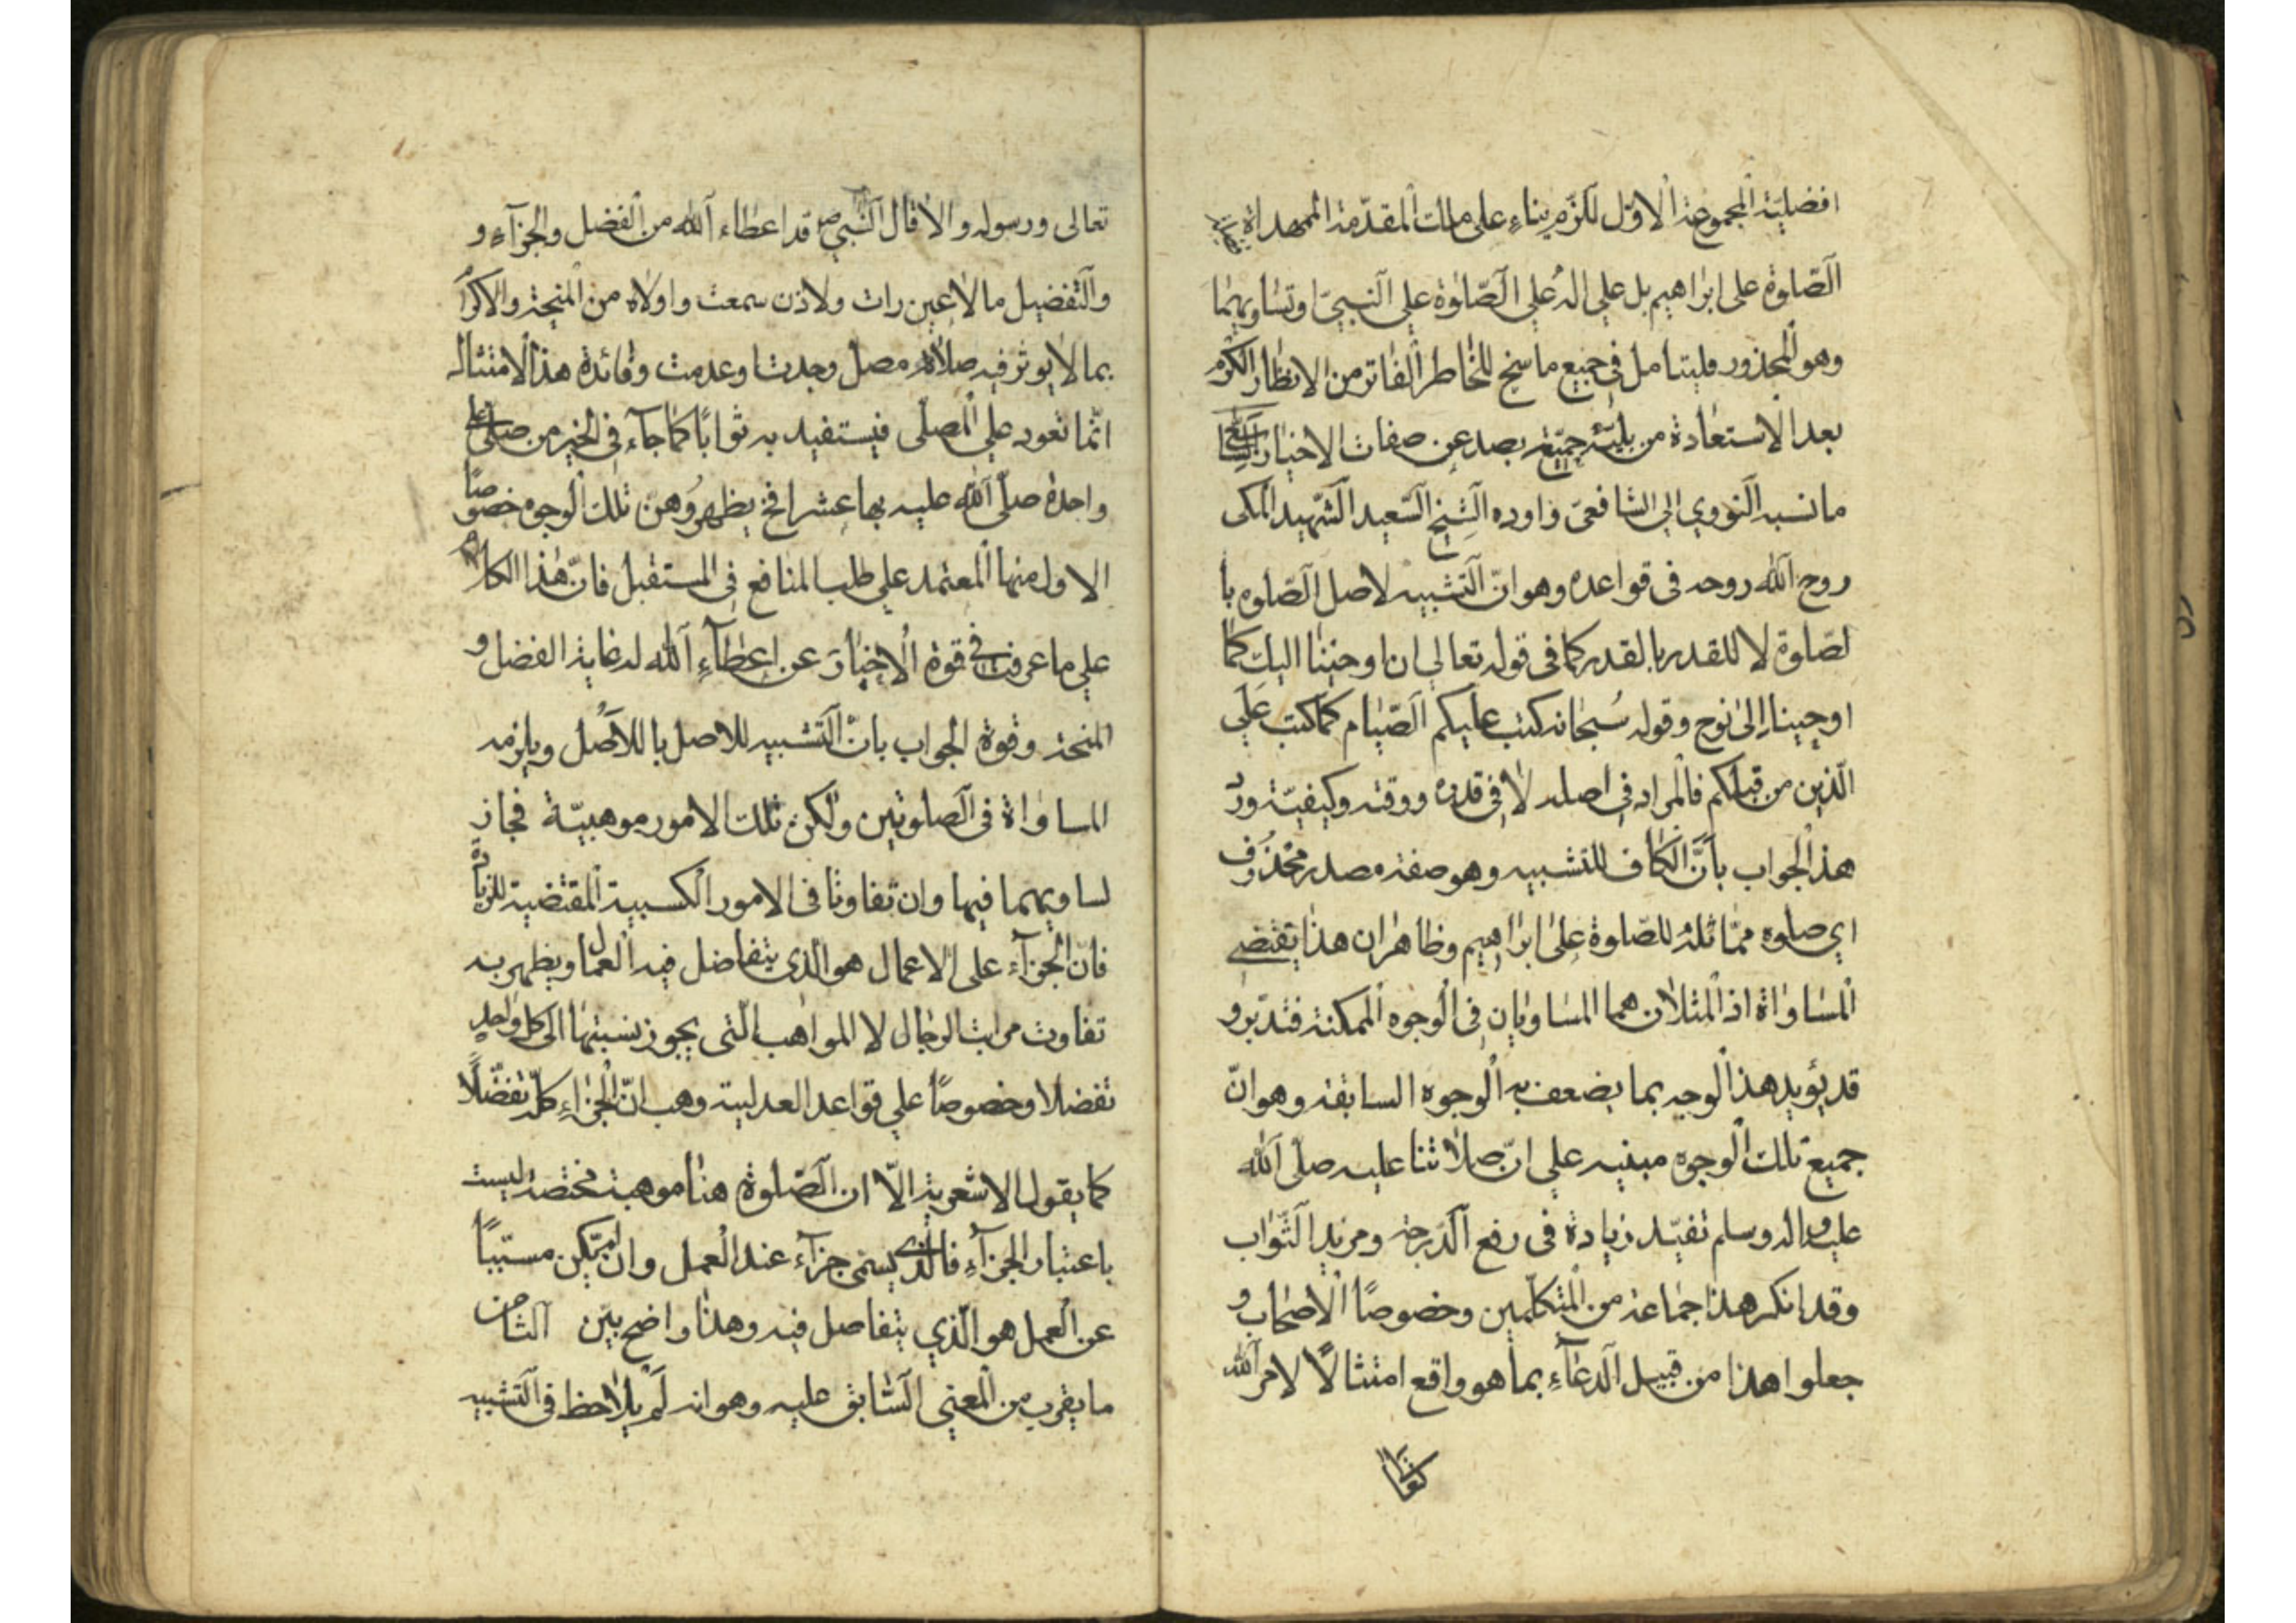 افضليّة المجموعة الاوّل لكزم بناء على مالت المقدّمة الممهداة
الصّلوة على ابراهيم بل علي اله علي الصّلوة علي النبيّ او تساويهما
وهو المحذور فليتامل في جميع ما سنح للخاطر الفاتر من الانظار
بعد الاستعاذة من بليّة جميّة بصد عن صفات الاخيار السابع
ما نسبه النووي الي الشافعيّ واورده الشيخ السّعيد الشّهيد المكى
روح اللّه روحه في قواعده وهو انّ التشبيه لاصل الصّلوه با
لصّلوة لا للقدر بالقدر كما في قوله تعالي انا اوحينا اليك كما
اوحينا الى نوح وقوله سُبحانه كتب عليكم الصّيام كما كتب علي
الّذين من قبلكم فالمراد في اصله لا في قدره ووقته وكيفيّته وردّ
هذا الجواب بأنّ الكاف للتشبيه وهو صفة مصدر محذوف
اي صلوه ممّاثلة للصّلوة على ابراهيم وظاهر ان هذا يقتضي
المساواة اذ المثلان هما المساويان في الوجوه الممكنة فتدبّر و
قد يؤيد هذا الوجه بما يضعف به الوجوه السابقة وهو انّ
جميع تلك الوجوه مبنيه علي انّ صلاتنا عليه صلّى اللّه
عليه واله وسلم تفيّد زيادة في رفع الدّرجة ومزيد الثّواب
وقد انكر هذا جماعة من المتكلّمين وخصوصًا الاصحاب و
جعلوا هذا من قبيل الدعاء بما هو واقع امتثالًا لامر اللّه
تعالى ورسوله والا قال النّبي ص قد اعطاء اللّه من الفضل والجزاء و
والتفضيل ما لا عين رات ولا اذن سمعت واولاه من المنحة والاكرا
بما لا يوثر فيه صلاة مصل وجدت او عدمت وفائدة هذا الامتثال
انّما تعود علي المصلّي فيستفيد به ثوابًا كما جاء في الخبر من صلّى على
واحدة صلّى اللّه عليه بها عشرا فح يظهر وهن تلك الوجوه خصوصًا
الاول منها المعتمد علي طلب المنافع في المستقبل فانّ هذا الكلام
علي ما عرفت في قوة الاخبار عن اعطاء اللّه له غاية الفضل و
المنحة وقوة الجواب بانّ التشبيه للاصل با للأصل ويلزمه
المساواة في الصلوتين ولكن تلك الامور موهبيّة فجاز
لساويهما فيها وان تفاوتا في الامور الكسبية المقتضية للزيادة
فانّ الجزاء على الاعمال هو الذي يتفاضل فيه العمال ويظهر به
تفاوت مراتب الرجال لا المواهب الّتى يجوز نسبتها الى كل واحد
تفضلا وخصوصًا علي قواعد العدلية وهب انّ الجزاء كلّه تفضّلًا
كما يقول الاشعرية الّا ان الصّلوة هنا موهبة مختصة ليست
باعتبار الجزاء فالّذي يسمى جزاء عند العمل وان لم يكن مسبّبًا
عن العمل هو الّذي يتفاصل فيه وهذا واضح بيّن الثامن
ما يقرب من المعني السّابق عليه وهو انه لم يلاحظ في التشبيه